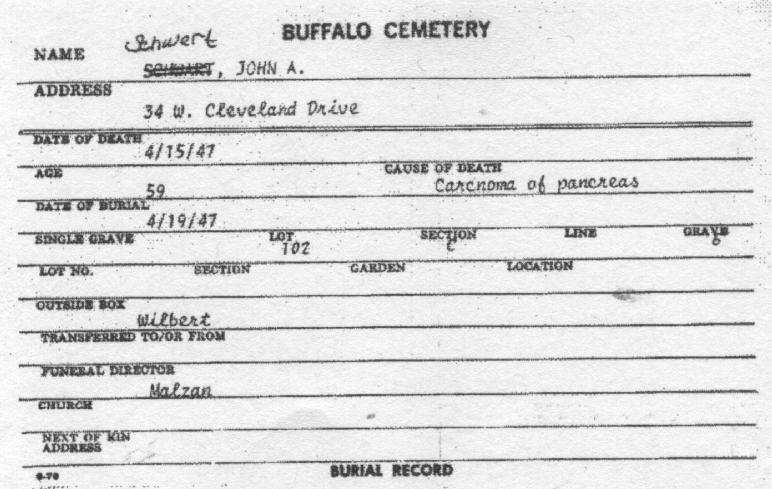 BUFFALO CEMETERY
Schwert
NAME
SCHWART, JOHN A.
ADDRESS
34 W. Cleveland Drive
DATE OF DEATH
4/15/47
AGE CAUSE OF DEATH
59 Carcnoma of pancreas
DATE OF BURIAL
4/19/47
SINGLE GRAVE LOT SECTION LINE GRAVE
102 C
LOT NO. SECTION GARDEN LOCATION
OUTSIDE BOX
Wilbert
TRANSFERRED TO/OR FROM
FUNERAL DIRECTOR
Malzan
CHURCH
NEXT OF KIN
ADDRESS
BURIAL RECORD